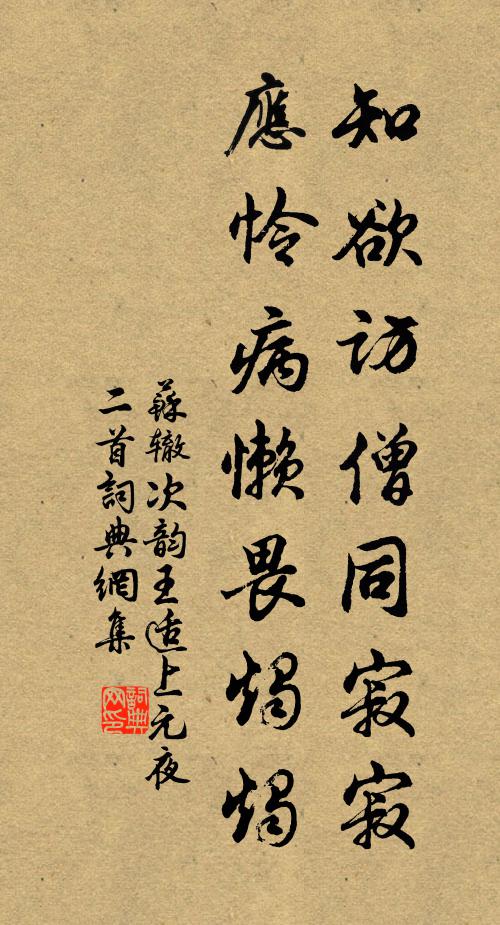 知欲訪僧同寂寂
應怜病懒畏燭燭
蘇辙次韵王适上元夜
二首詞典網集
詞典網印